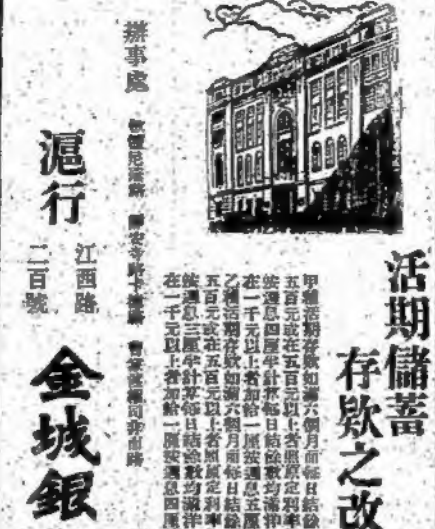 活期儲蓄
存欵之改
甲種活期存欵如滿六個月而每日結餘
五百元或在五百元以上者照原定利率
按週息四厘半計算每日結餘數均滿洋
在一千元以上者加給一厘按週息五厘
乙種活期存欵如滿六個月而每日結餘
五百元或在五百元以上者照原定利率
按週息三厘半計算每日結餘數均滿洋
在一千元以上者加給一厘按週息四厘
辦事處
靜安寺路卡德路
滬行
江西路
二百號
金城銀